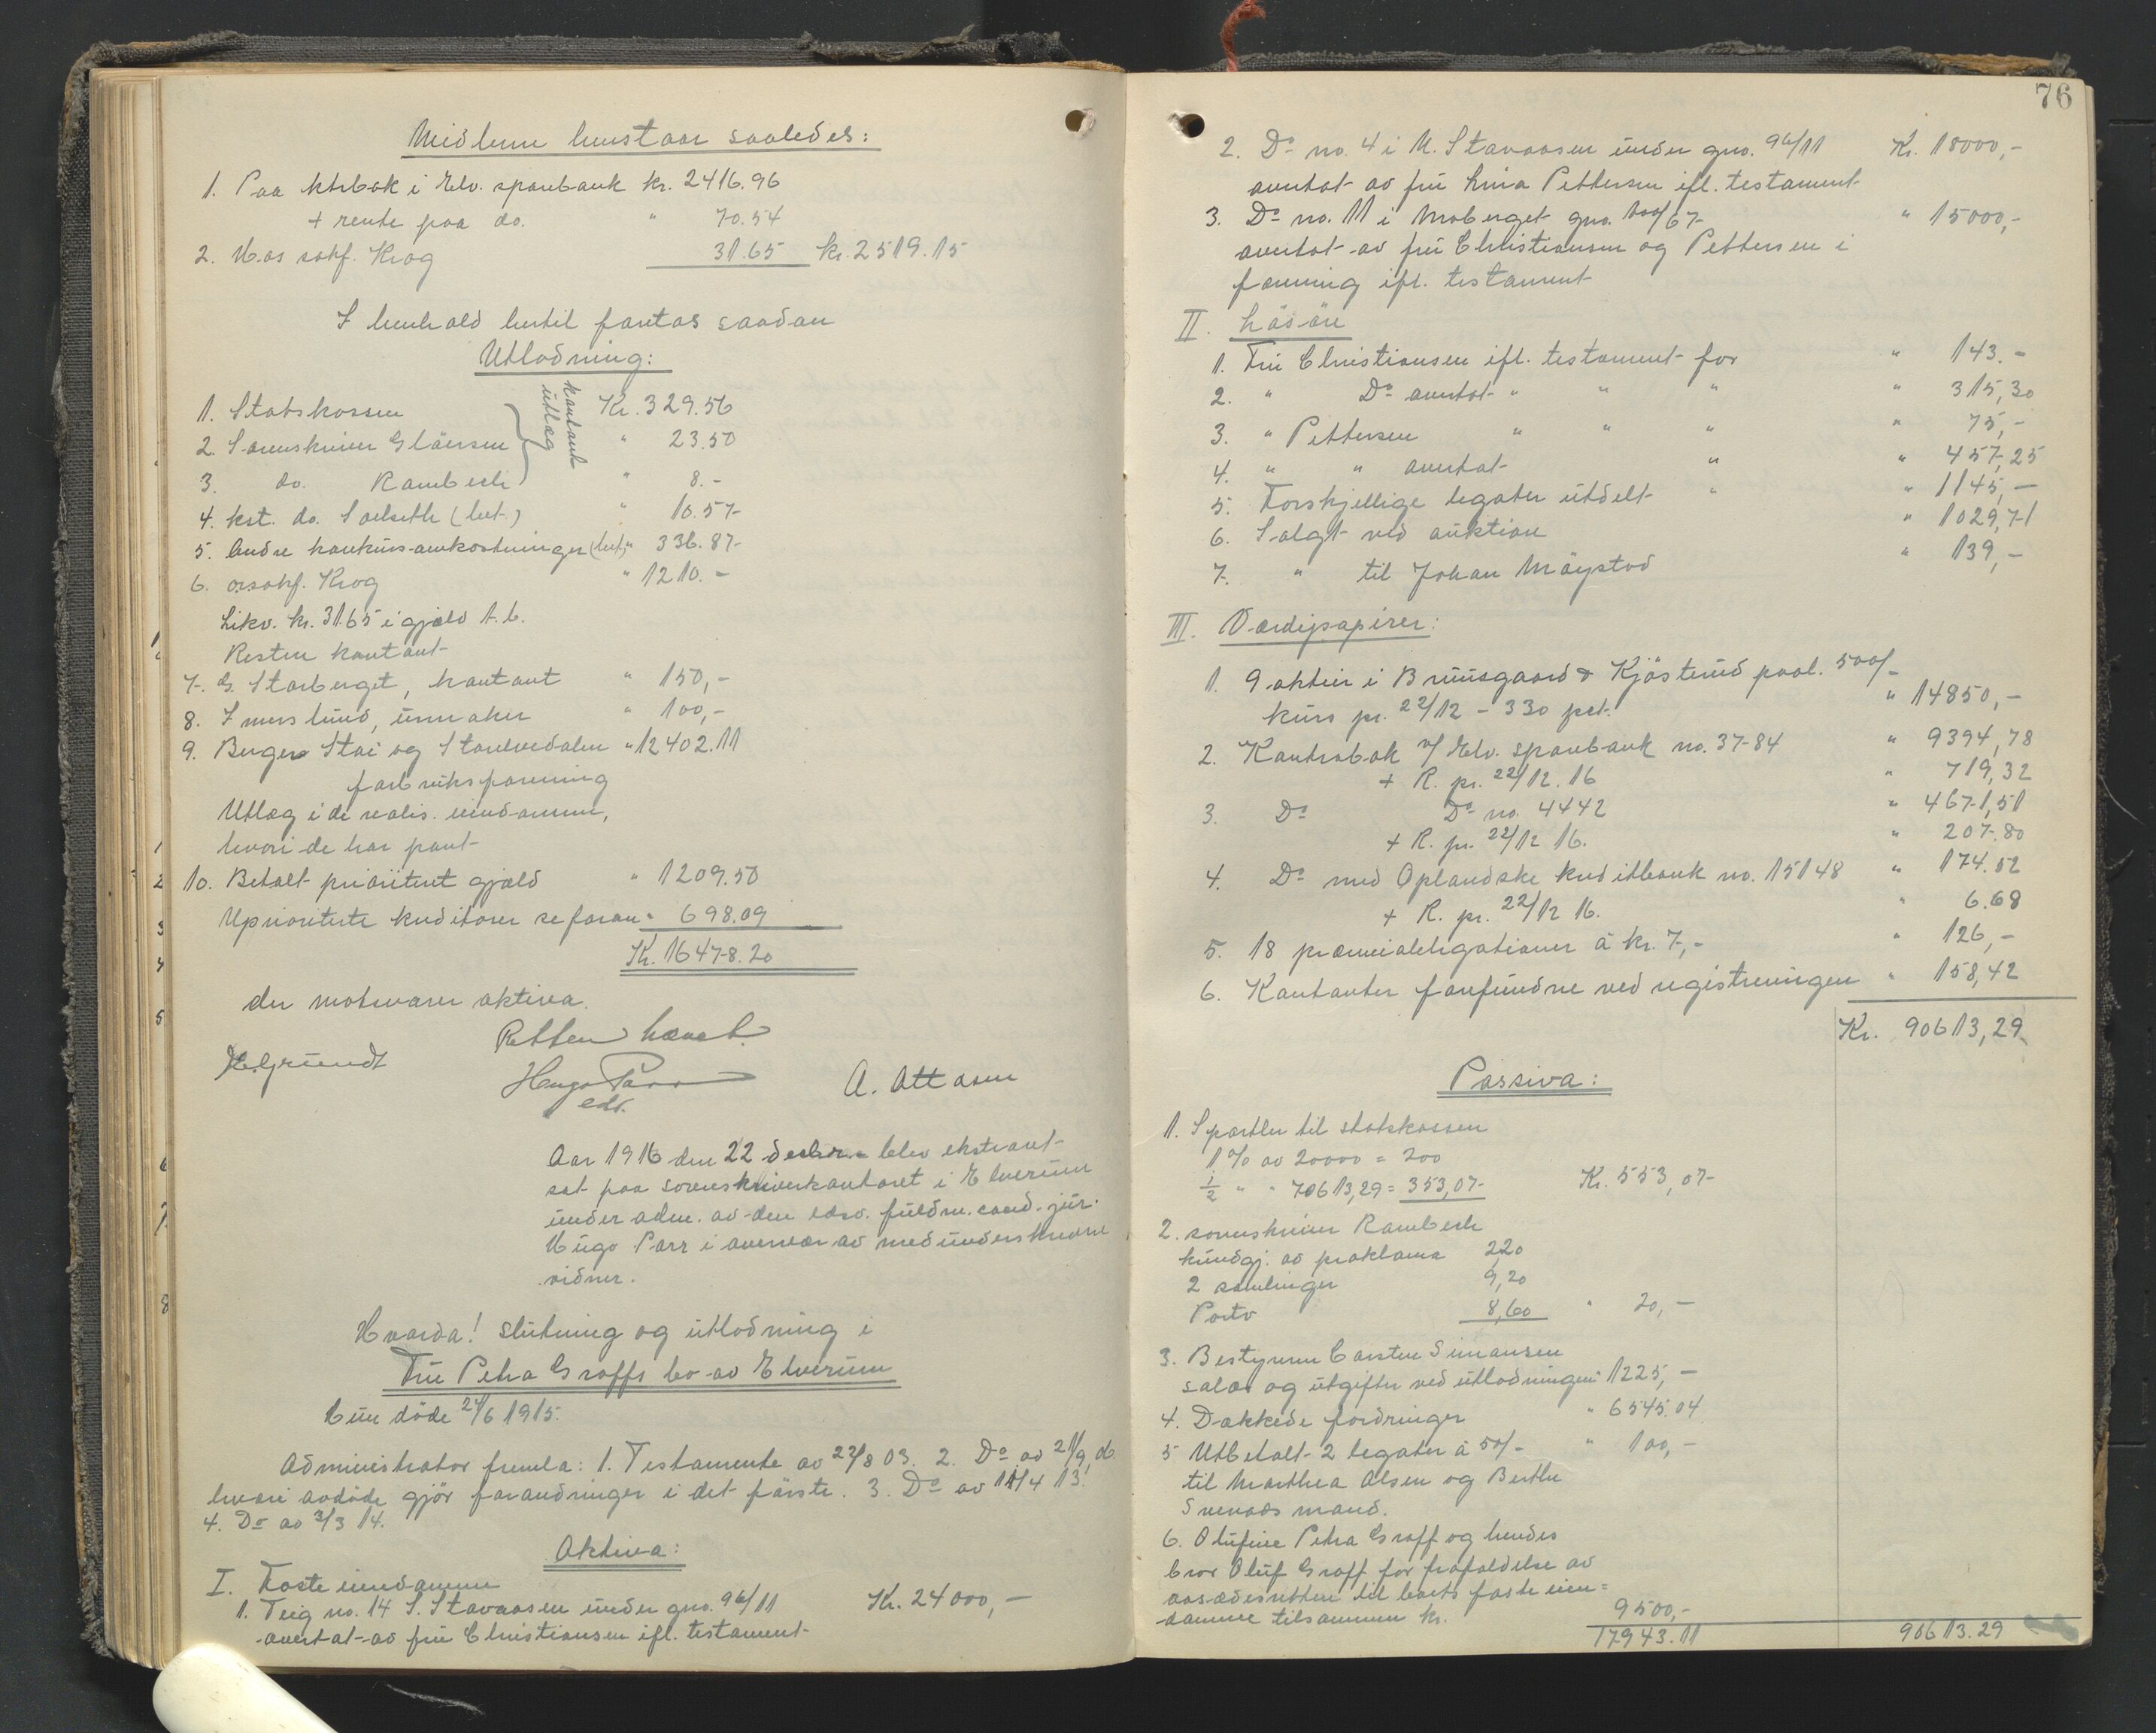 Midlerne henstaar saaledes:
1. Paa ktrbok i Elv. sparebank kr. 2416.96
+ rente paa do. " 70.54
2. Hos sakf. Krog 31.65 kr. 2519.15
I henhold hertil fantas saadan
Utlodning:
1. Statskassen Kr. 329.56
2. Sorenskriver Glärsen " 23.50
3. do. Rambech " 8.-
kontant utlæg
4. kst. do. Saelseth (bet.) " 10.57
5. Andre konkurs-omkostninger (bet.) " 336.87
6. o.r.sakf. Krog " 1210.-
Likv. kr. 31.65 i gjæld t. b.
Resten kontant
7. G. Storberget, kontant " 150,-
8. Imerslund, urmaker " 100,-
9. Berger Stai og Storelvedalen " 12402.11
forbruksforening
Utlæg i de realis. eiendomme,
hvori de har pant
10. Betalt prioritert gjæld " 1209.50
Uprioriterte kreditorer se foran " 698.09
Kr. 16478.20
der motsvarer aktiva.
Retten hævet.
Hugo Parr
edv.
A. Ottosen
Aar 1916 den 22 decbr. blev ekstraret
sat paa sorenskriverkontoret i Elverum
under adm. av den edsv. fuldm. cand. jur.
Hugo Parr i overvær av medunderskrevne
vidner.
Hvorda! slutning og utlodning i
Fru Petra Graffs bo av Elverum
hun døde 24/6 1915.
Administrator fremla: 1. Testamente av 22/8 03. 2. Do av 21/9 06
hvori avdøde gjør forandringer i det første. 3. Do av 11/4 13.
4. Do av 3/3 14.
Aktiva:
I. Faste eiendomme
1. Teig no. 14 S. Stavaasen under gno. 96/11 Kr. 24000,-
overtat av fru Christiansen ifl. testament
76
2. Do no. 4 i N. Stavaasen under gno. 96/11 Kr. 18000,-
overtat av fru Lina Pettersen ifl. testament
3. Do no. 11 i Moberget gno. 100/67 " 15000,-
overtat av fru Christiansen og Pettersen i
forening ifl. testament
II. Løsøre
1. Fru Christiansen ifl. testament for " 143.-
2. " Do overtat " " " " 315,30
3. " Pettersen " " " " 75,-
4. " " overtat " " 457,25
5. Forskjellige legater utdelt " " 1145,-
6. Solgt ved auktion " 1029,71
7. " til Johan Møystad " 139,-
III. Værdipapirer:
1. 9 aktier i Bruusgaard & Kjøsterud paal. 500/-
kurs pr. 22/12 - 330 pct. " 14850,-
2. Kontrabok v/ Elv. sparebank no. 3784 " 9394,78
+ R. pr. 22/12. 16 " 719,32
3. Do Do no. 4442 " 4671,51
+ R. pr. 22/12 16. " 207.80
4. Do med Oplandske kreditbank no. 15148 " 174.52
+ R. pr. 22/12 16. " 6.68
5. 18 præmieobligationer à kr. 7,- " 126,-
6. Kontanter forefundne ved registreringen " 158,42
Kr. 90613,29
Passiva:
1. Sportler til statskassen
1% av 20000 = 200
1/2 " " 70613,29 = 353,07 Kr. 553,07
2. sorenskriver Rambech
kundgj. av proklama 2,20
2 samlinger 9,20
Porto 8,60 " 20,-
3. Bestyreren Carsten Simonsen
salær og utgifter ved utlodningen " 1225,-
4. Dækkede fordringer " 6545.04
5 Utbetalt 2 legater à 50/- " 100,-
til Marthea Olsen og Berthe
mand.
6. Olufine Petra Graff og hendes
bror Oluf Graff for frafaldelse av
aasædesretten til boets faste eien=
domme tilsammen kr. 9500,-
17943.11 90613.29